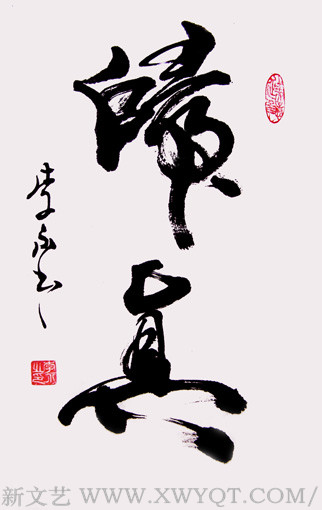 歸真
李永书
新文艺 WWW.XWYQT.COM/